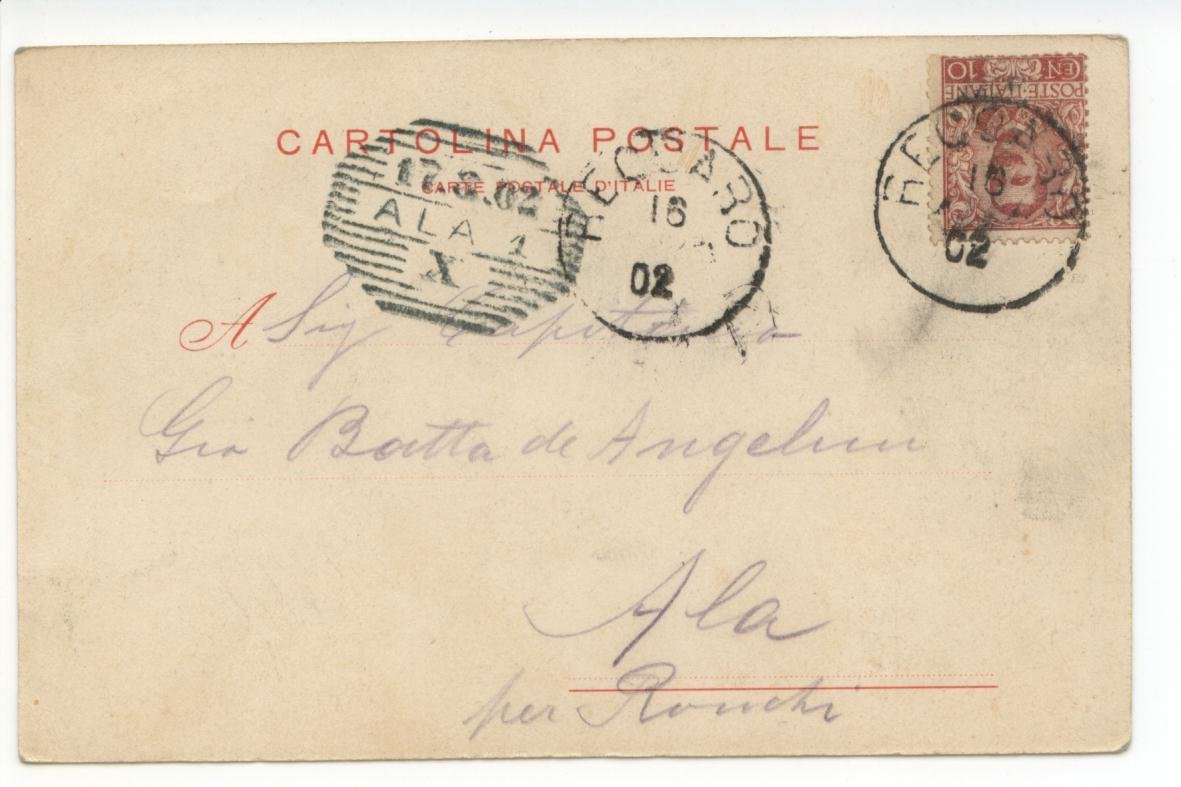 CEN. 10
POSTE·ITALIANE
CARTOLINA POSTALE
CARTE POSTALE D'ITALIE
17.8.02
ALA 1
X
RECOARO
16
02
RECOARO
16
02
A Sig Capitano
Gio Batta de Angelini
Ala
per Ronchi